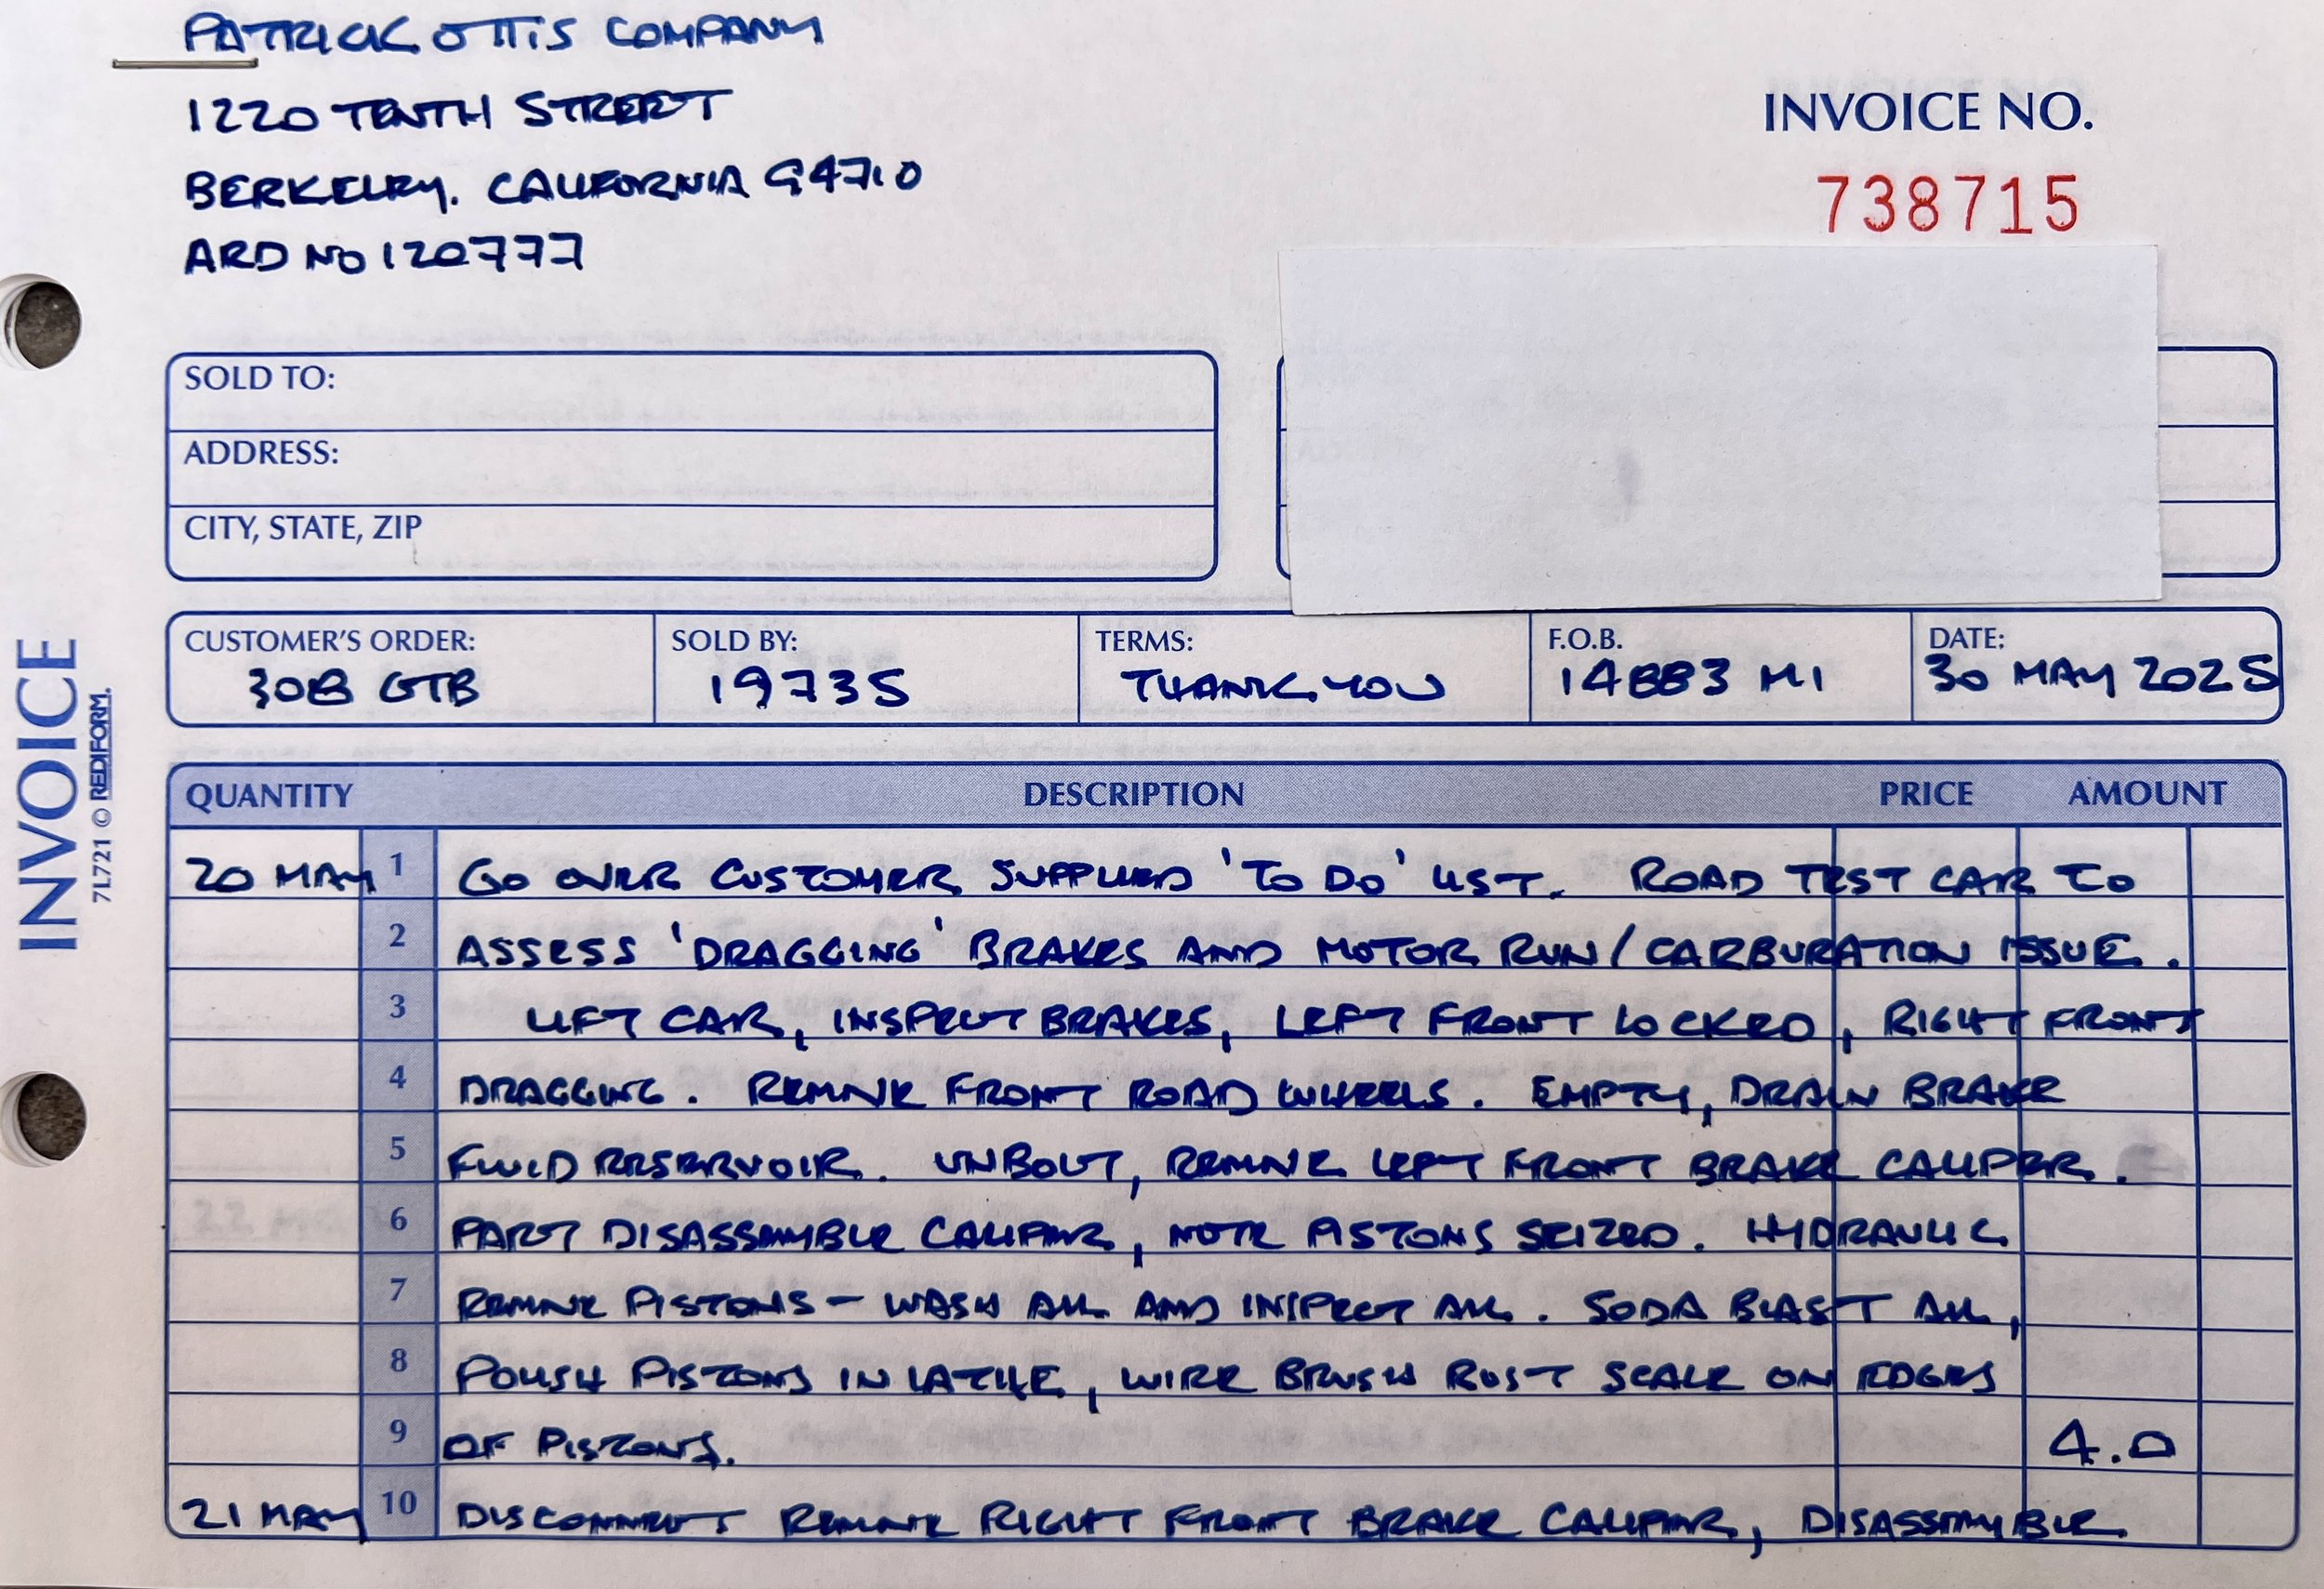 PATRICK OTTIS COMPANY
1220 TENTH STREET
BERKELEY. CALIFORNIA 94710
ARD NO 120777
INVOICE NO.
738715
SOLD TO:
ADDRESS:
CITY, STATE, ZIP
CUSTOMER'S ORDER: SOLD BY: TERMS: F.O.B. DATE:
308 GTB 19735 THANK YOU 14883 MI 30 MAY 2025
INVOICE
7L721 © REDIFORM.
QUANTITY DESCRIPTION PRICE AMOUNT
20 MAY 1 GO OVER CUSTOMER SUPPLIED 'TO DO' LIST. ROAD TEST CAR TO
2 ASSESS 'DRAGGING' BRAKES AND MOTOR RUN/CARBURATION ISSUE.
3 LIFT CAR, INSPECT BRAKES, LEFT FRONT LOCKED, RIGHT FRONT
4 DRAGGING. REMOVE FRONT ROAD WHEELS. EMPTY, DRAIN BRAKE
5 FLUID RESERVOIR. UNBOLT, REMOVE LEFT FRONT BRAKE CALIPER.
6 PART DISASSEMBLE CALIPER, NOTE PISTONS SEIZED. HYDRAULIC
7 REMOVE PISTONS - WASH ALL AND INSPECT ALL. SODA BLAST ALL,
8 POLISH PISTONS IN LATHE, WIRE BRUSH RUST SCALE ON EDGES
9 OF PISTONS. 4.0
21 MAY 10 DISCONNECT REMOVE RIGHT FRONT BRAKE CALIPER, DISASSEMBLE